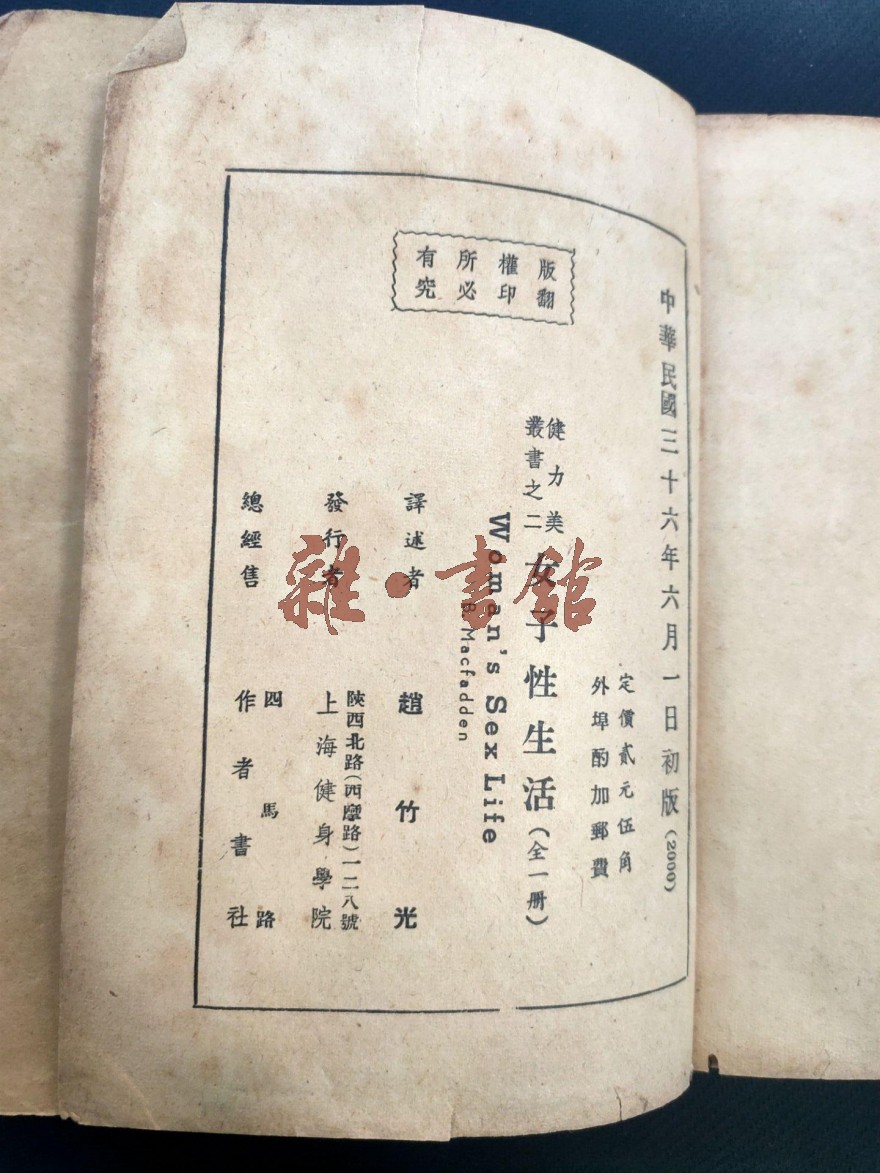 中華民國三十六年六月一日初版(2000)
定價貳元伍角
外埠酌加郵費
版權所有
翻印必究
健力美
叢書之二
女子性生活(全一册)
Woman's Sex Life
B. Macfadden
譯述者 趙竹光
發行者 上海健身學院
陝西北路(西摩路)一二八號
總經售 作者書社
四馬路
雜·書館